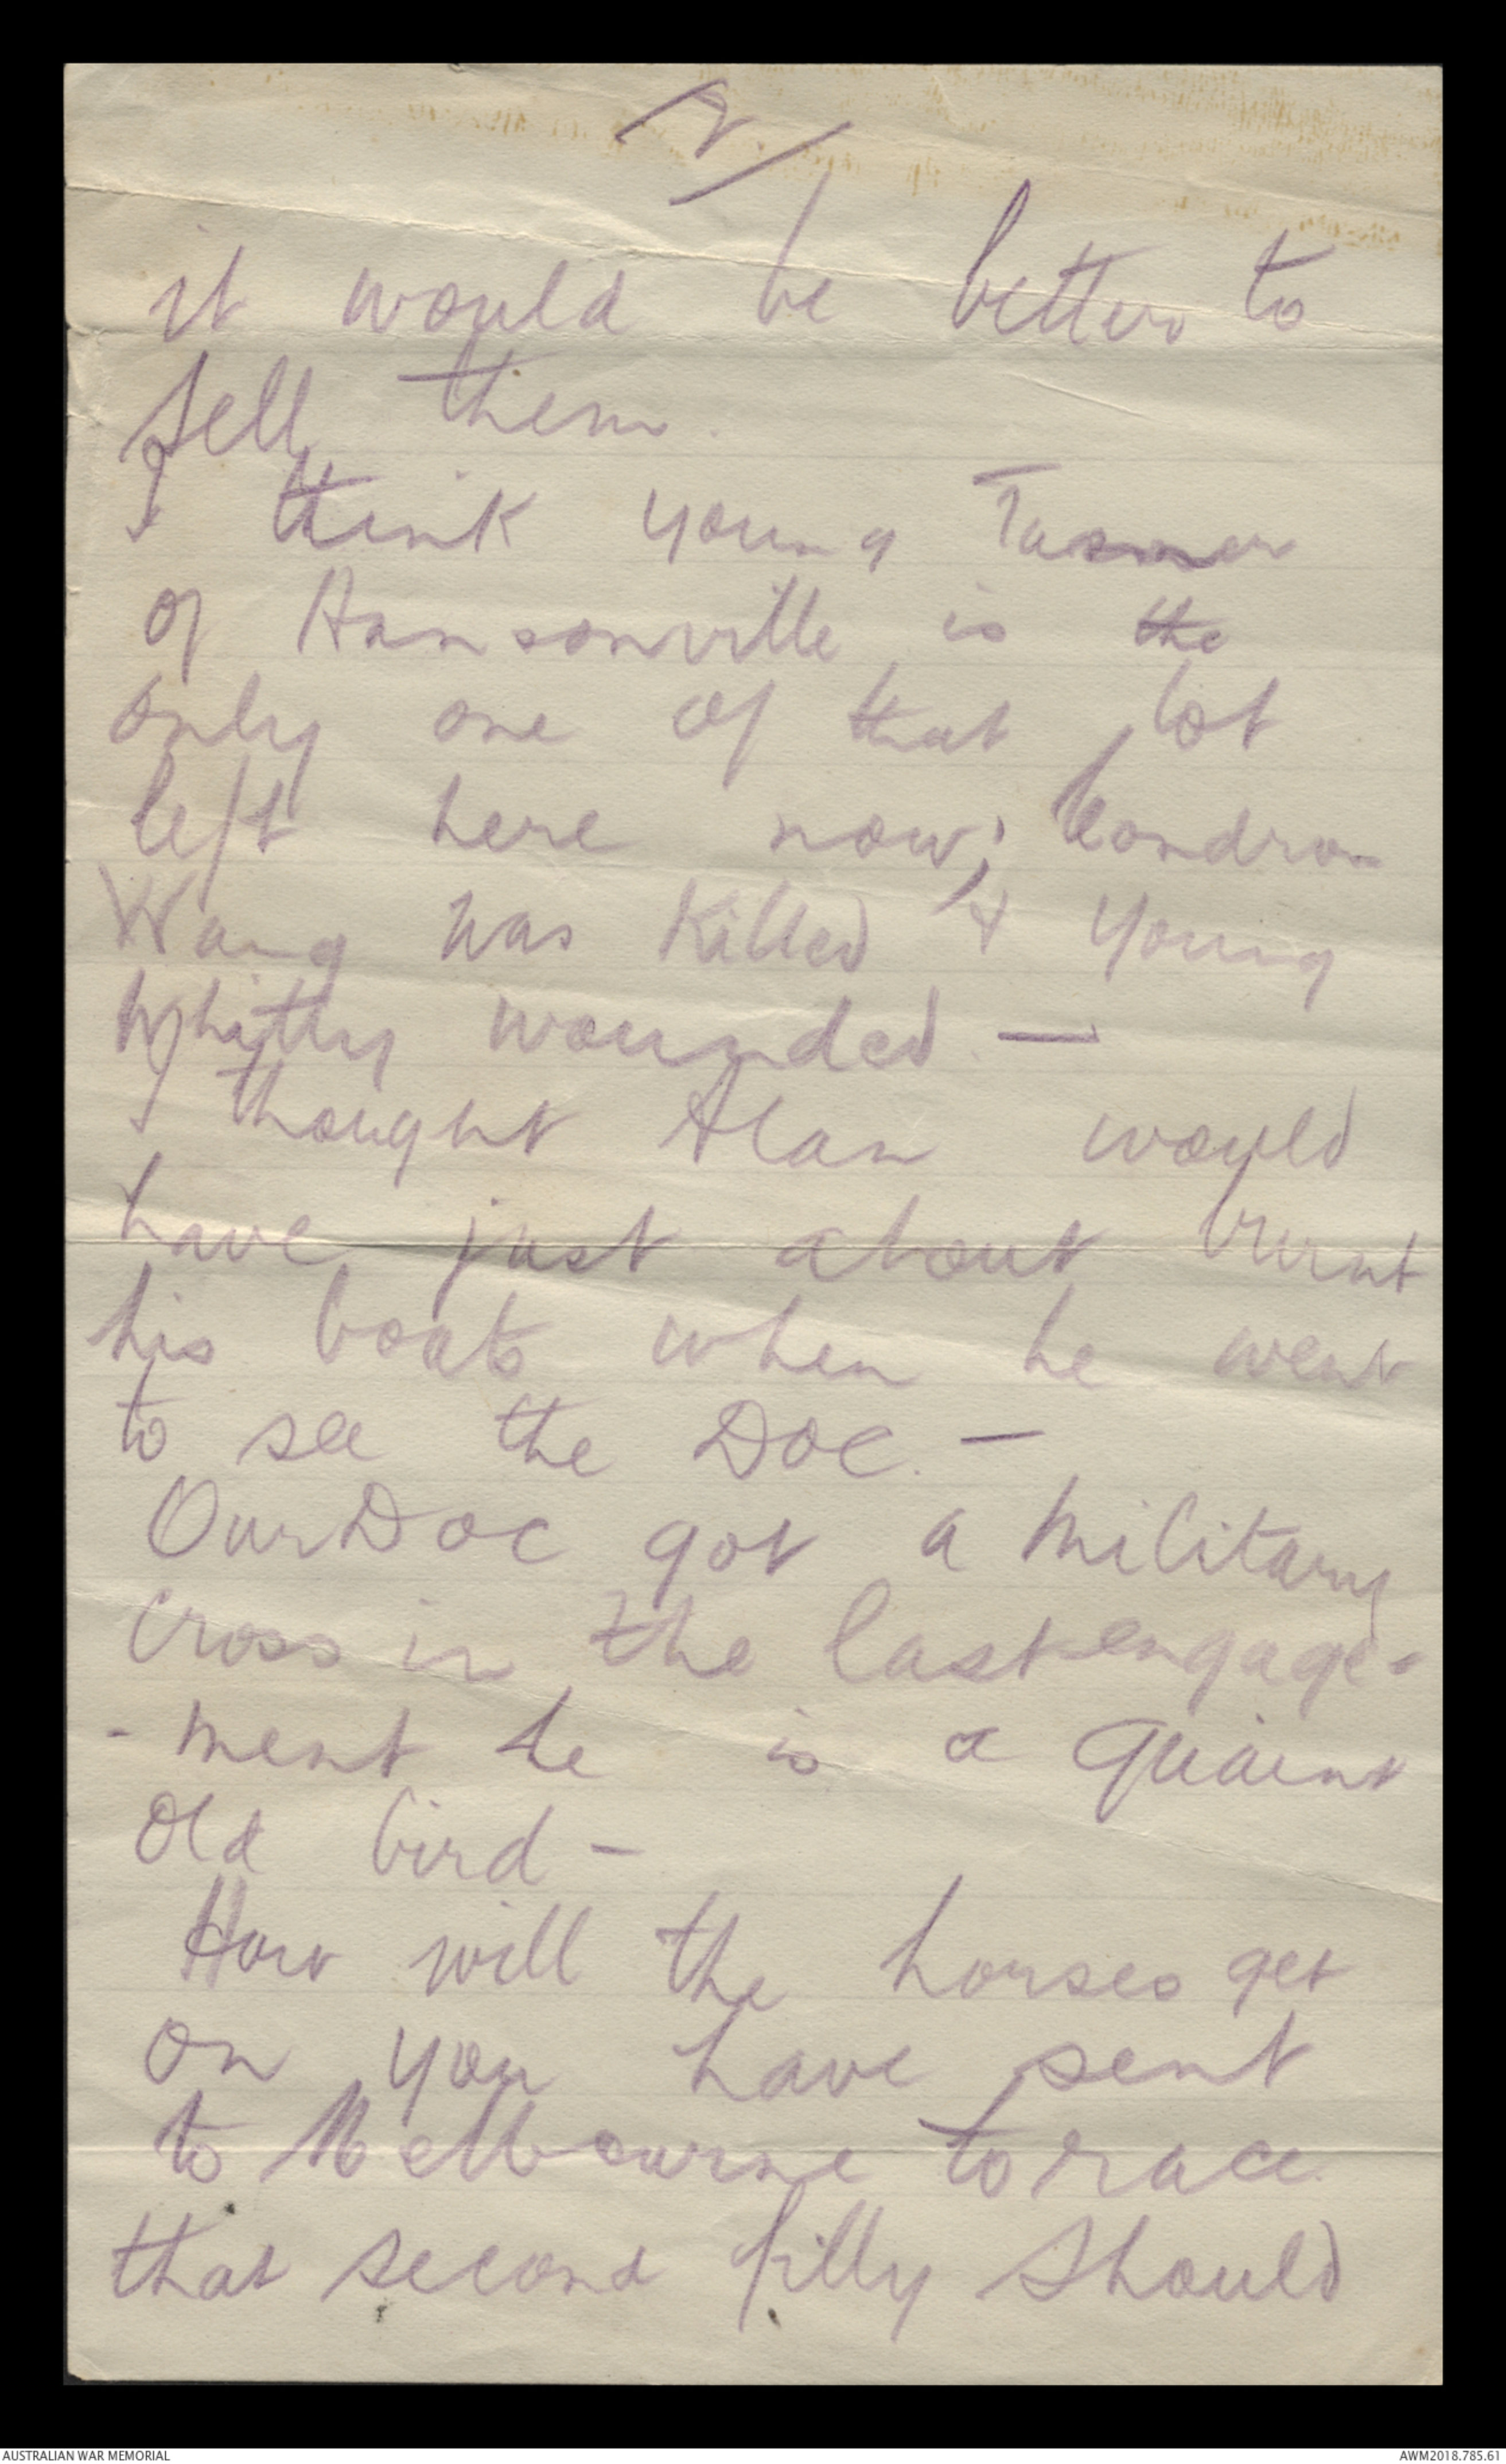 2/
it would be better to
sell them.
I think young
of Hansonville is the
only one of that lot
left here now;
Wang was killed & young
Whitty wounded —
I thought Alan would
have just about burnt
his boats when he went
to see the Doc. —
Our Doc got a Military
Cross in the last engage-
-ment he is a quaint
old bird -
How will the horses get
on you have sent
to Melbourne to race
that second filly should
AUSTRALIAN WAR MEMORIAL
AWM2018.785.61